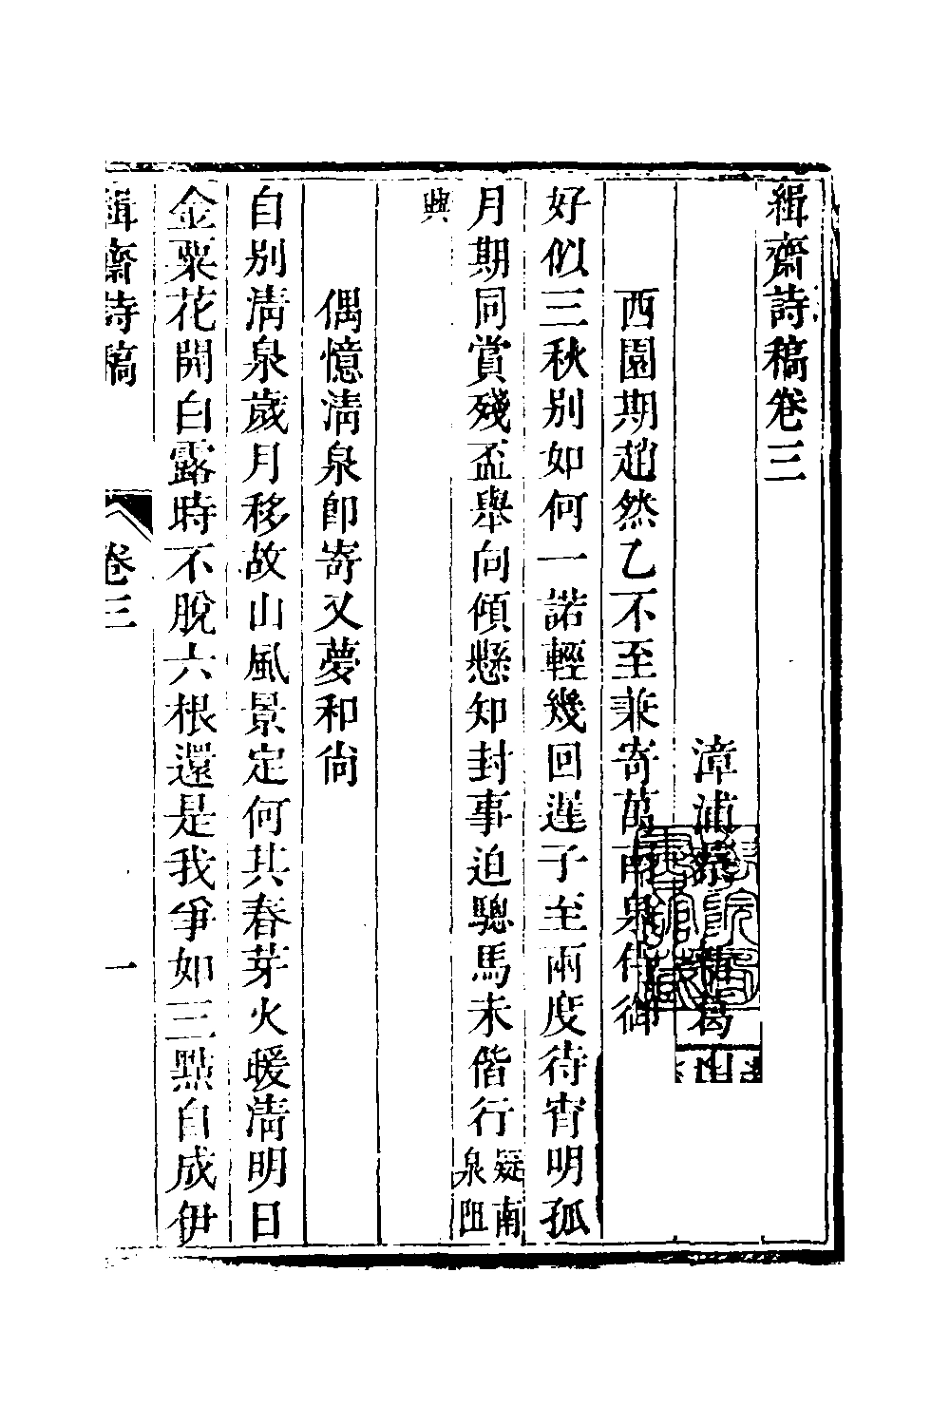 緝齋詩稿卷三
漳浦蔡 新葛山
西園期趙然乙不至兼寄萬南泉侍御
好似三秋別如何一諾輕幾回遲子至兩度待宵明孤
月期同賞殘盃舉向傾懸知封事迫驄馬未偕行疑南泉阻
興
偶憶清泉卽寄又夢和尚
自別清泉歲月移故山風景定何其春芽火暖清明日
金粟花開白露時不脫六根還是我爭如三點自成伊
緝齋詩稿 卷三 一